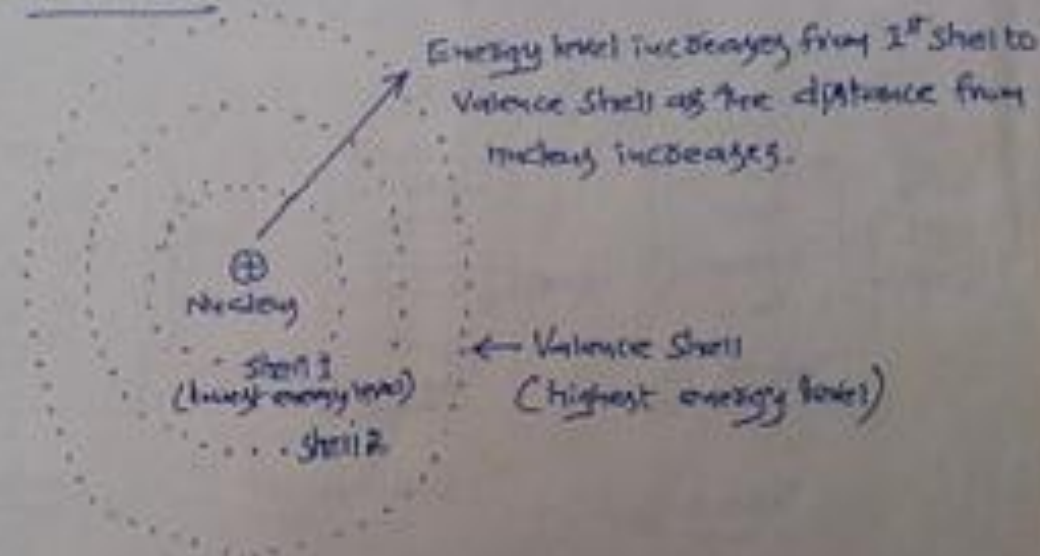 Energy level increases from 1st Shell to
Valence Shell as the distance from
nucleus increases.
⊕
Nucleus
Shell 1
(lowest energy level)
Shell 2
← Valence Shell
(highest energy level)